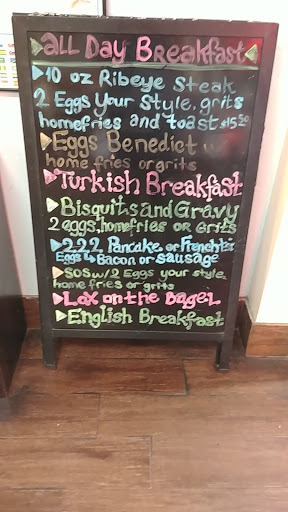 all Day Breakfast
10 oz Ribeye Steak
2 Eggs Your Style, grits
homefries and toast $15.20
Eggs Benedict w
home fries or grits
Turkish Breakfast
Bisquits and Gravy
2 eggs. homefries or Grits
2.2.2 Pancake or French
Eggs 4 Bacon or sausage
SOS w/2 Eggs your style
home fries or grits
Lox on the Bagel
English Breakfast